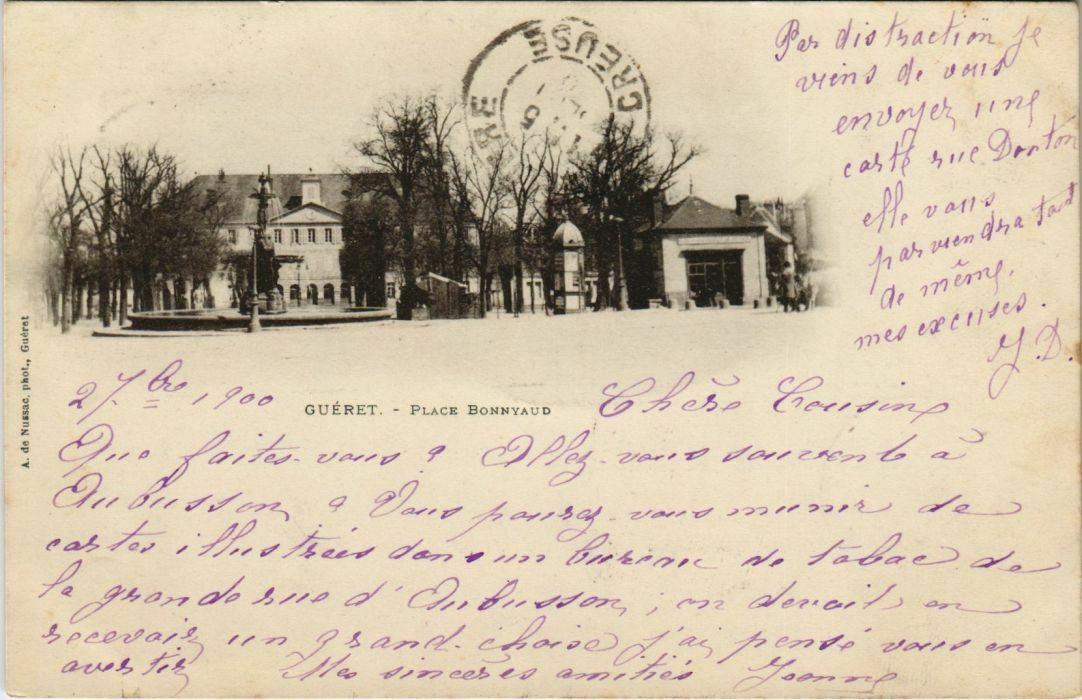 CREUSE
Par distraction je
viens de vous
envoyer une
carte rue Danton
elle vous
parviendra tout
de même.
mes excuses.
J. D.
A. de Nussac, phot., Guéret
27. bre 1900
GUÉRET. - PLACE BONNYAUD
Chère Cousine
Que faites-vous ? Allez-vous souvent à
Aubusson ? Vous pouvez-vous munir de
cartes illustrées dans un bureau de tabac de
la grande rue d'Aubusson ; on devait en
recevoir un grand choix j'ai pensé vous en
avertir Mes sincères amitiés Jeanne